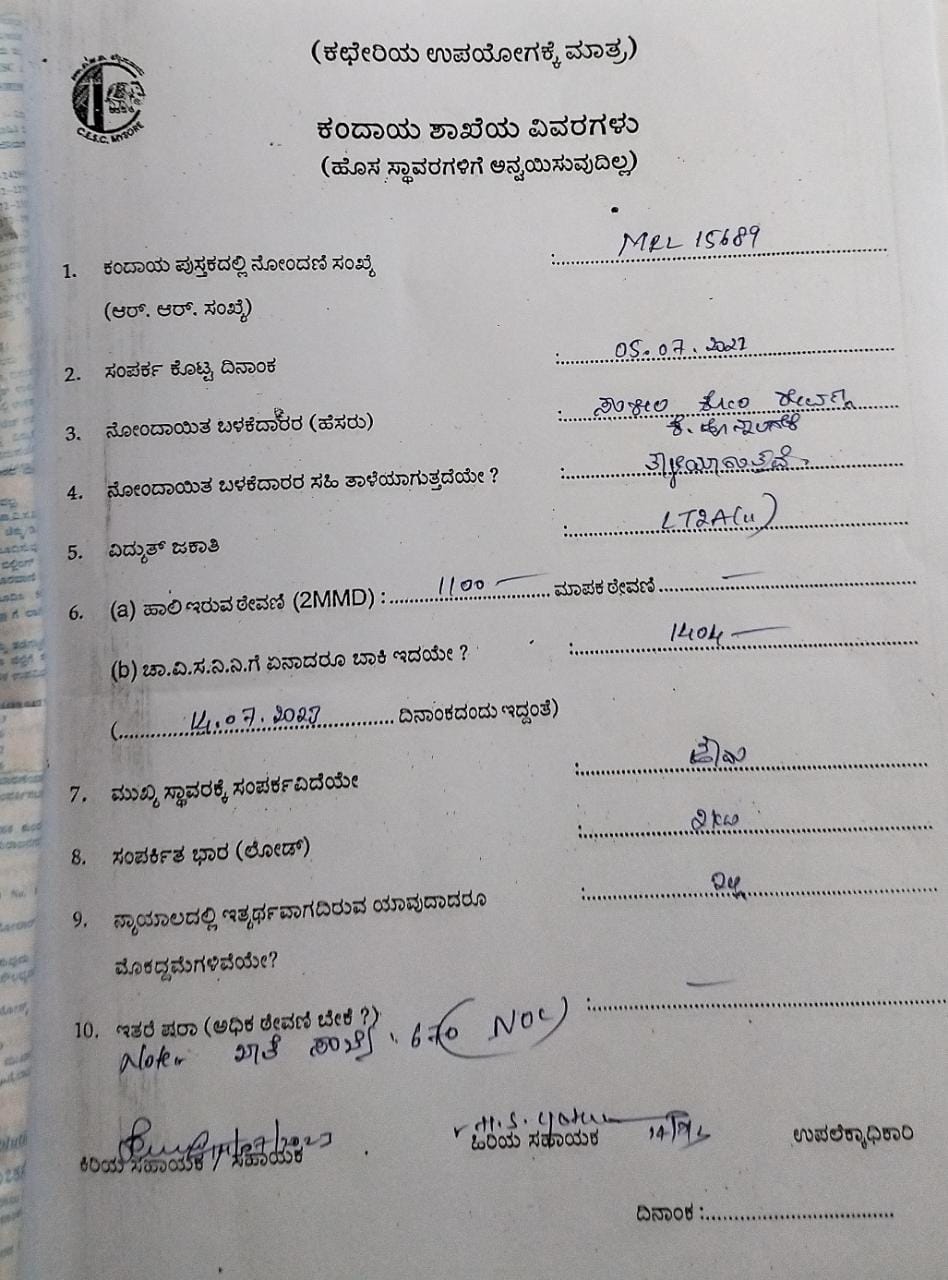 (ಕಛೇರಿಯ ಉಪಯೋಗಕ್ಕೆ ಮಾತ್ರ)
C.E.S.C. MYSORE
ಕಂದಾಯ ಶಾಖೆಯ ವಿವರಗಳು
(ಹೊಸ ಸ್ಥಾವರಗಳಿಗೆ ಅನ್ವಯಿಸುವುದಿಲ್ಲ)
1. ಕಂದಾಯ ಪುಸ್ತಕದಲ್ಲಿ ನೋಂದಣಿ ಸಂಖ್ಯೆ :MRL 15689
(ಆರ್. ಆರ್. ಸಂಖ್ಯೆ)
2. ಸಂಪರ್ಕ ಕೊಟ್ಟ ದಿನಾಂಕ :05.07.2022
3. ನೋಂದಾಯಿತ ಬಳಕೆದಾರರ (ಹೆಸರು) :
4. ನೋಂದಾಯಿತ ಬಳಕೆದಾರರ ಸಹಿ ತಾಳೆಯಾಗುತ್ತದೆಯೇ ? :ತಾಳೆಯಾಗುತ್ತದೆ
5. ವಿದ್ಯುತ್ ಜಕಾತಿ :LT2A(u)
6. (a) ಹಾಲಿ ಇರುವ ಠೇವಣಿ (2MMD) :1100 — ಮಾಪಕ ಠೇವಣಿ —
(b) ಚಾ.ವಿ.ಸ.ನಿ.ನಿ.ಗೆ ಏನಾದರೂ ಬಾಕಿ ಇದೆಯೇ ? :1404 —
(14.07.2023 ದಿನಾಂಕದಂದು ಇದ್ದಂತೆ)
7. ಮುಖ್ಯ ಸ್ಥಾವರಕ್ಕೆ ಸಂಪರ್ಕವಿದೆಯೇ :ಹೌದು
8. ಸಂಪರ್ಕಿತ ಭಾರ (ಲೋಡ್) :2KW
9. ನ್ಯಾಯಾಲದಲ್ಲಿ ಇತ್ಯರ್ಥವಾಗದಿರುವ ಯಾವುದಾದರೂ :ಇಲ್ಲ
ಮೊಕದ್ದಮೆಗಳಿವೆಯೇ?
10. ಇತರೆ ಷರಾ (ಅಧಿಕ ಠೇವಣಿ ಬೇಕೆ ?) :—
Note: ಖಾತೆ ಸಂಖ್ಯೆ. 670 (NOC)
ಕಿರಿಯ ಸಹಾಯಕ / ಸಹಾಯಕ ಹಿರಿಯ ಸಹಾಯಕ ಉಪಲೆಕ್ಕಾಧಿಕಾರಿ
ದಿನಾಂಕ :